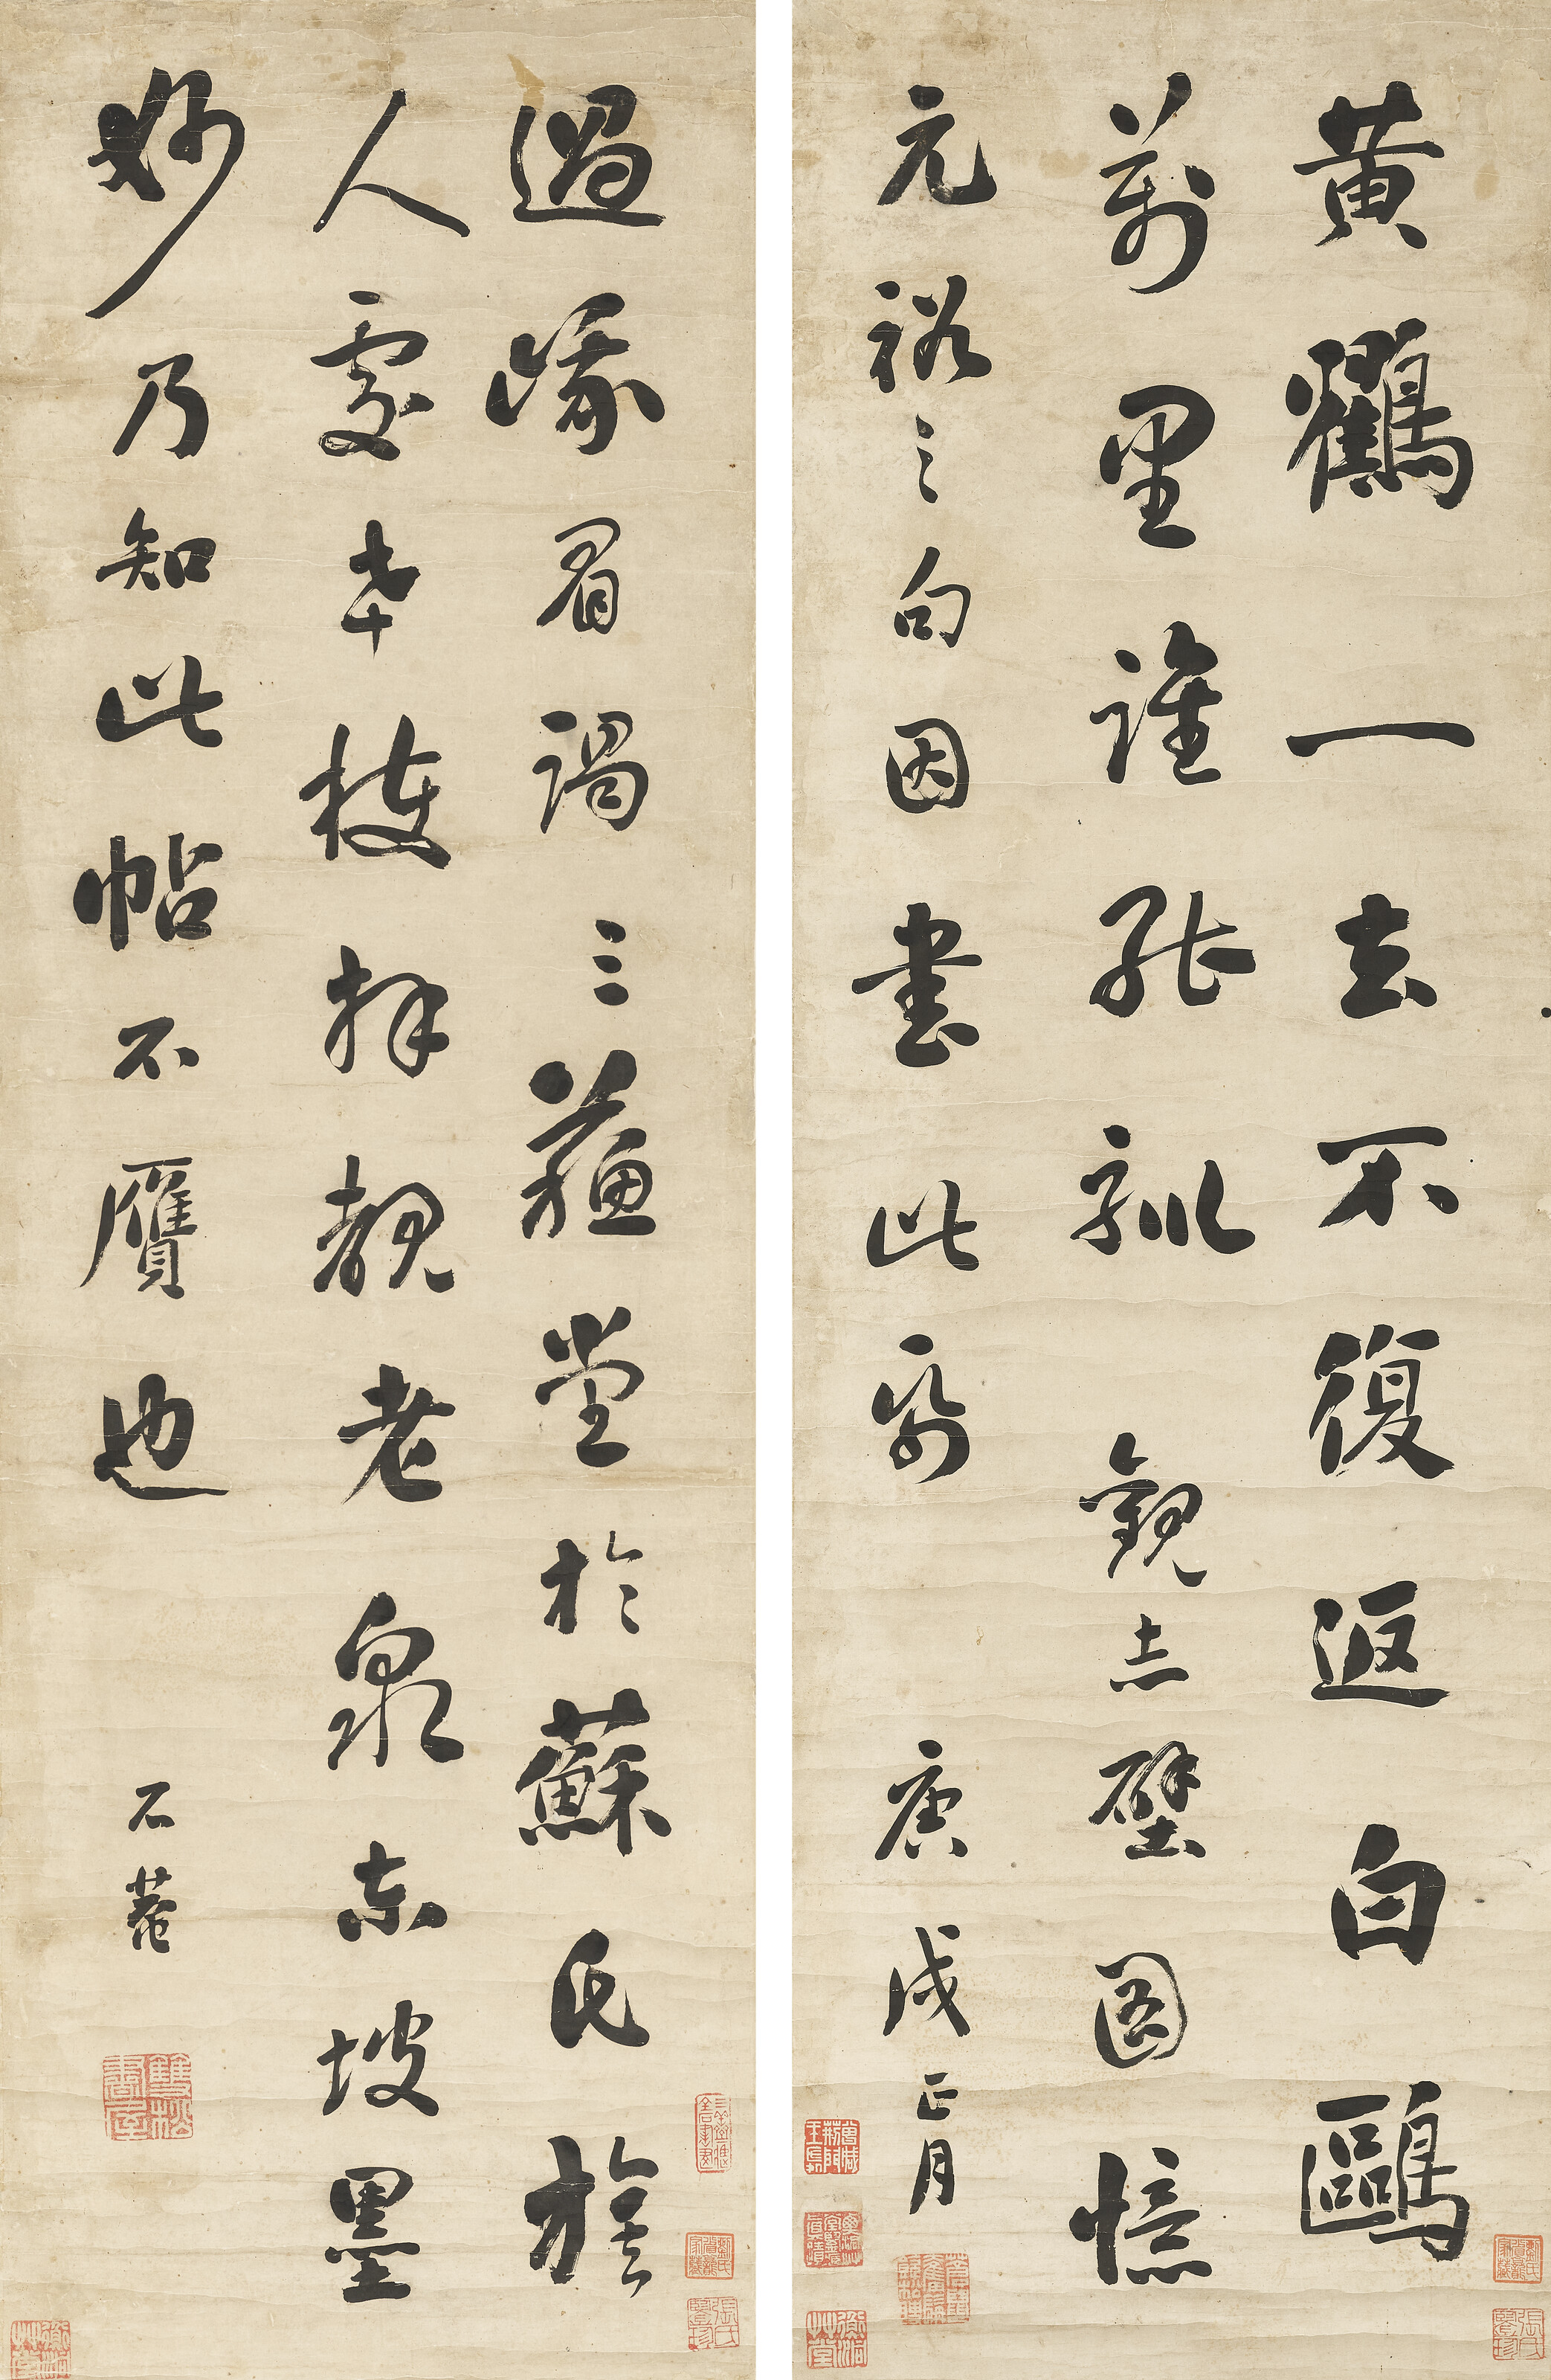 黃鶴一去不復返白鷗
萬里誰能馴 觀赤壁圖憶
元裕之句因書此 庚戌正月
過峨眉謁三蘇堂於蘇氏族
人處幸獲拜觀老泉東坡墨
妙乃知此帖不贗也
石菴